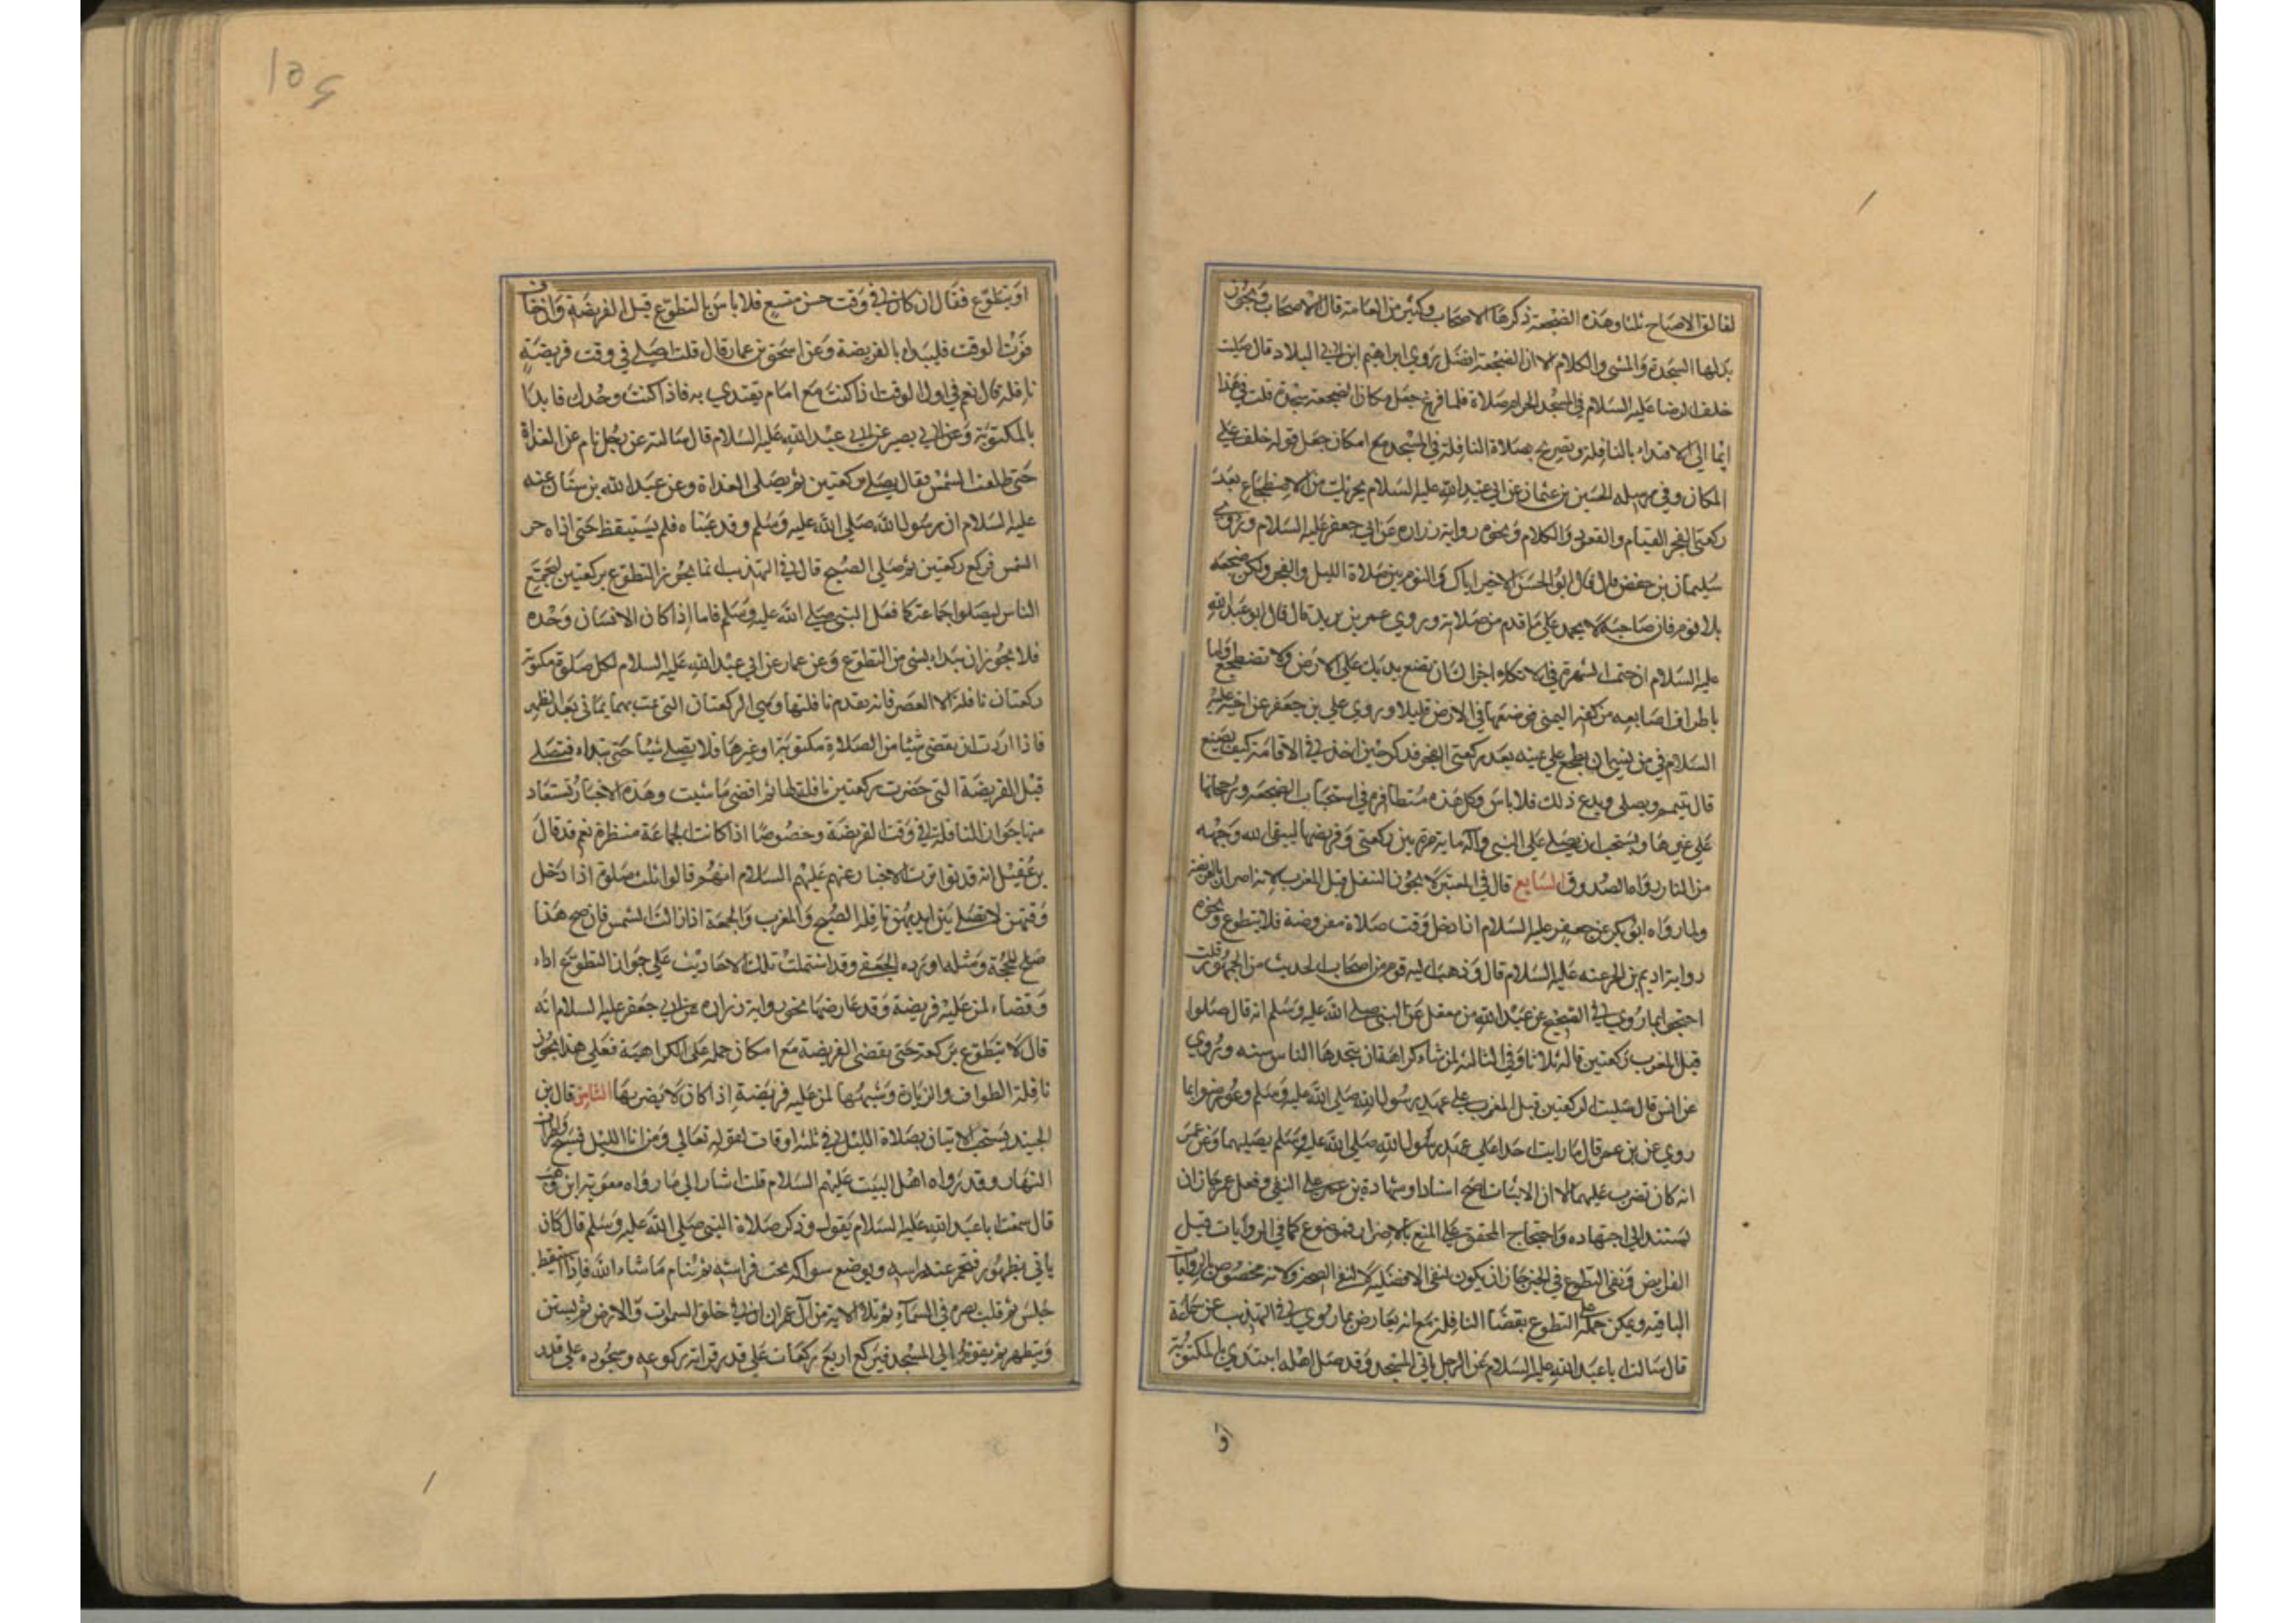 لفالق الاصباح ثلثا وهذه الضجعة ذكرها الاصحاب وكثير من العامة قال الاصحاب ويجوز
بدلها السجدة والمشي والكلام الا ان الضجعة افضل روي ابراهيم ابن ابي البلاد قال صليت
خلف الرضا عليه السلام في المسجد الحرام صلاة فلما فرغ جعل مكان الضجعة سجدة قلت في هذا
انما الي الاقتداء بالنافلة وتصريح بصلاة النافلة في المسجد مع امكان جعل قوله خلف علي
المكان وفي مرسله الحسين بن عثمان عن ابي عبد الله عليه السلام يجزيك من الاضطجاع بعد
ركعتي الفجر القيام والقعود والكلام ونحوه رواية زرارة عن ابي جعفر عليه السلام وروي
سليمان بن حفص قال قال ابو الحسن الاخير اياك والنوم بين صلاة الليل والفجر ولكن ضجعه
بلا نوم فان صاحبه لا يحمد علي ما قدم من صلاته وروي عمر بن يزيد قال قال ابو عبد الله
عليه السلام ان خفت الشهرة في الاتكاء اجزاك ان تضع يديك علي الارض ولا تضطجع واوما
باطراف اصابعه من كفه اليمني فوضعها في الارض قليلا وروي علي بن جعفر عن اخيه عليه
السلام في من نسي ان يضطجع علي يمينه بعد ركعتي الفجر فذكر حين اخذ في الاقامة كيف يصنع
قال يتيم ويصلي ويدع ذلك فلا باس وكل هذه متظافرة في استحباب الضجعة ورجحانها
علي غيرها ويستحب ان يصلي علي النبي وآله ماية مرة بين ركعتي وفريضها ليبقي الله وجهه
من النار رواه الصدوق السابع قال في المعتبر لا يجوز التنفل قبل المغرب لانه اضرار بالفريضة
ولما رواه ابو بكر عن جعفر عليه السلام اذا دخل وقت صلاة مفروضة فلا يتطوع ونحوه
رواية اديم بن الحر عنه عليه السلام قال وذهب اليه قوم من اصحاب الحديث من الجمهور قلت
احتجوا بما روي في الصحيح عن عبد الله بن معقل عن النبي صلي الله عليه وسلم انه قال صلوا
قبل المغرب ركعتين قاله ثلاثا وفي الثالثة لمن شاء كراهة ان يتخدها الناس سنه وروي
عن انس قال صليت الركعتين قبل المغرب علي عهد رسول الله صلي الله عليه وسلم وعورضوا بما
روي عن بن عمر قال ما رايت احدا علي عهد رسول الله صلي الله عليه وسلم يصليهما وعن عمر
انه كان يضرب عليهما الا ان الاثبات اصح اسنادا وشهادة بن عمر علي النفي وفعل عمر جاز ان
يستند الي اجتهاده واحتجاج المحقق علي المنع بالاضرار فموضوع كما في الروايات قبل
الفرايض ونفي التطوع في الخبر جاز ان يكون لنفي الافضليه لا لنفي الصحة ولانه مخصوص بالروايات
الباقيه ويمكن حمله علي التطوع بقضا النافلة مع انه يعارض بما روي في التهذيب عن سماعة
قال سالت ابا عبد الله عليه السلام عن الرجل ياتي المسجد وقد صلي اهله ايبتدي بالمكتوبة
او
او يتطوع فقال ان كان في وقت حسن متسع فلا باس بالتطوع قبل الفريضة وان خاف
فوت الوقت فليبدا بالفريضة وعن اسحق بن عمار قال قلت اصلي في وقت فريضة
نافلة قال نعم في اول الوقت اذا كنت مع امام يقتدي به فاذا كنت وحدك فابدا
بالمكتوبة وعن ابي بصير عن ابي عبد الله عليه السلام قال سالته عن رجل نام عن الغداة
حتي طلعت الشمس فقال يصلي ركعتين ثم يصلي الغداة وعن عبد الله بن سنان عنه
عليه السلام ان رسول الله صلي الله عليه وسلم رقد عيناه فلم يستيقظ حتي اذاه حر
الشمس فركع ركعتين ثم صلي الصبح قال في التهذيب انما يجوز التطوع بركعتين ليجتمع
الناس ليصلوا جماعة كما فعل النبي صلي الله عليه وسلم فاما اذا كان الانسان وحده
فلا يجوز ان يبداء بشي من التطوع وعن عمار عن ابي عبد الله عليه السلام لكل صلوة مكتوبة
ركعتان نافلة الا العصر فانه تقدم نافلتها وهي الركعتان التي تمت بهما ثماني بعد الظهر
فاذا اردت ان تقضي شيئا من الصلاة مكتوبة او غيرها فلا تصلي شيئا حتي تبداء فتصلي
قبل الفريضة التي حضرت ركعتين نافلة لها ثم اقضي ما شيت وهذه الاخبار تستفاد
منها جواز النافلة في وقت الفريضة وخصوصا اذا كانت الجماعة منتظرة نعم قد قال
بن عقيل انه قد تواترت الاخبار عنهم عليهم السلام انهم قالوا ثلث صلوة اذا دخل
وقتهن لا تصلي بين ايديهن نافلة الصبح والمغرب والجمعة اذا زالت الشمس فان صح هذا
صلح للحجة ومثله اورده الجعفي وقد اشتملت تلك الاحاديث علي جواز التطوع اداء
وقضاء لمن عليه فريضة وقد عارضها نحو رواية زرارة عن ابي جعفر عليه السلام انه
قال لا يتطوع بركعة حتي يقضي الفريضة مع امكان حمله علي الكراهية فعلي هذا يجوز
نافلة الطواف والزيارة وشبهها لمن عليه فريضة اذا كان لا يضر بها الثامن قال بن
الجنيد يستحب الاتيان بصلاة الليل في ثلثة اوقات لقوله تعالي ومن انا الليل فسبح واطراف
النهار وقد رواه اهل البيت عليهم السلام قلت اشار الي ما رواه معوية ابن وهب
قال سمعت ابا عبد الله عليه السلام يقول وذكر صلاة النبي صلي الله عليه وسلم قال كان
ياتي بطهور فتخمر عند راسه ويوضع سواكه تحت فراشه ثم ينام ما شاء الله فاذا استيقظ
جلس ثم قلب بصره في السماء ثم تلا الاية من آل عمران ان في خلق السموات والارض ثم يستن
ويتطهر ثم يقوم الي المسجد فيركع اربع ركعات علي قدر قراته ركوعه وسجوده علي قدر